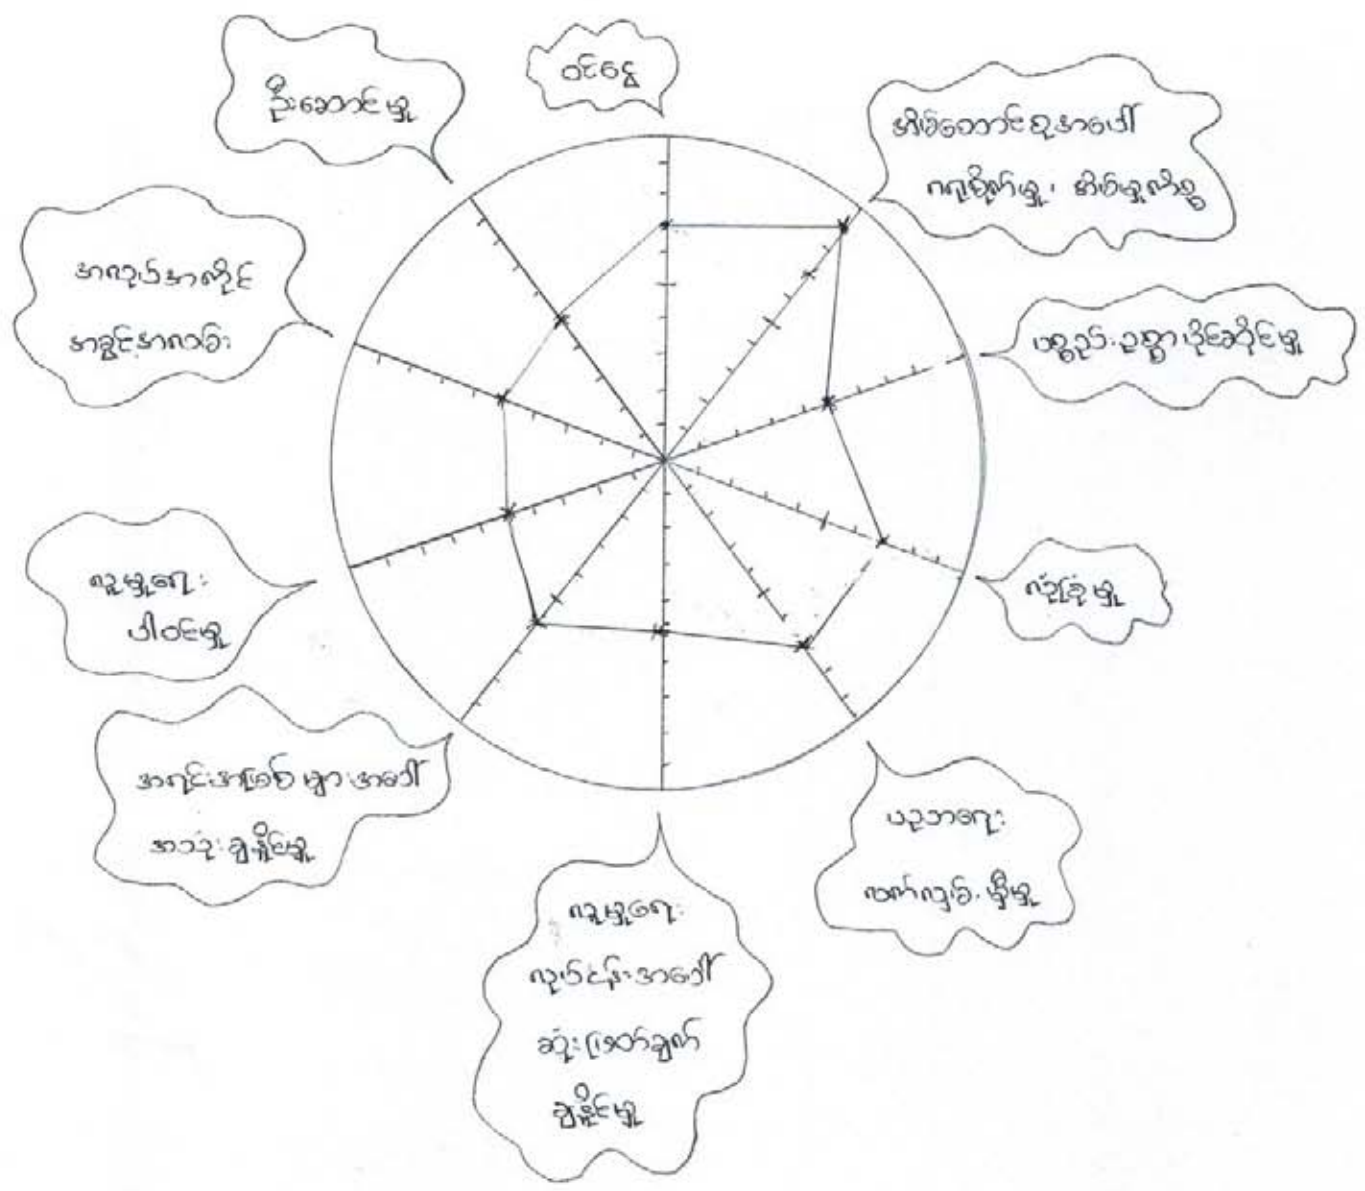 ဝင်ငွေ
အိမ်ထောင်စုအပေါ်
ဂရုစိုက်မှု၊ အိမ်မှုကိစ္စ
ပစ္စည်းဥစ္စာပိုင်ဆိုင်မှု
လုံခြုံမှု
ပညာရေး
လက်လှမ်းမှီမှု
လူမှုရေး
လုပ်ငန်းအပေါ်
ဆုံးဖြတ်ချက်
ချနိုင်မှု
အရင်းအမြစ်များအပေါ်
အသုံးချနိုင်မှု
လူမှုရေး
ပါဝင်မှု
အလုပ်အကိုင်
အခွင့်အလမ်း
ဦးဆောင်မှု